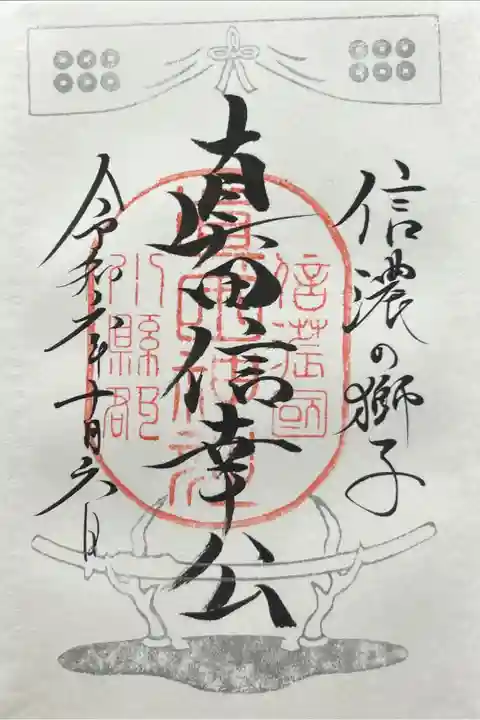 信濃の獅子
真田信幸公
令和六年十月六日
信濃國
真田神社
小縣郡